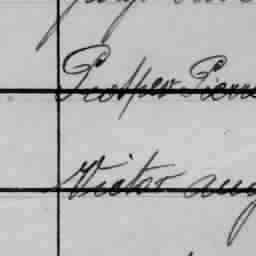 Prosper Pierre
Victor aug